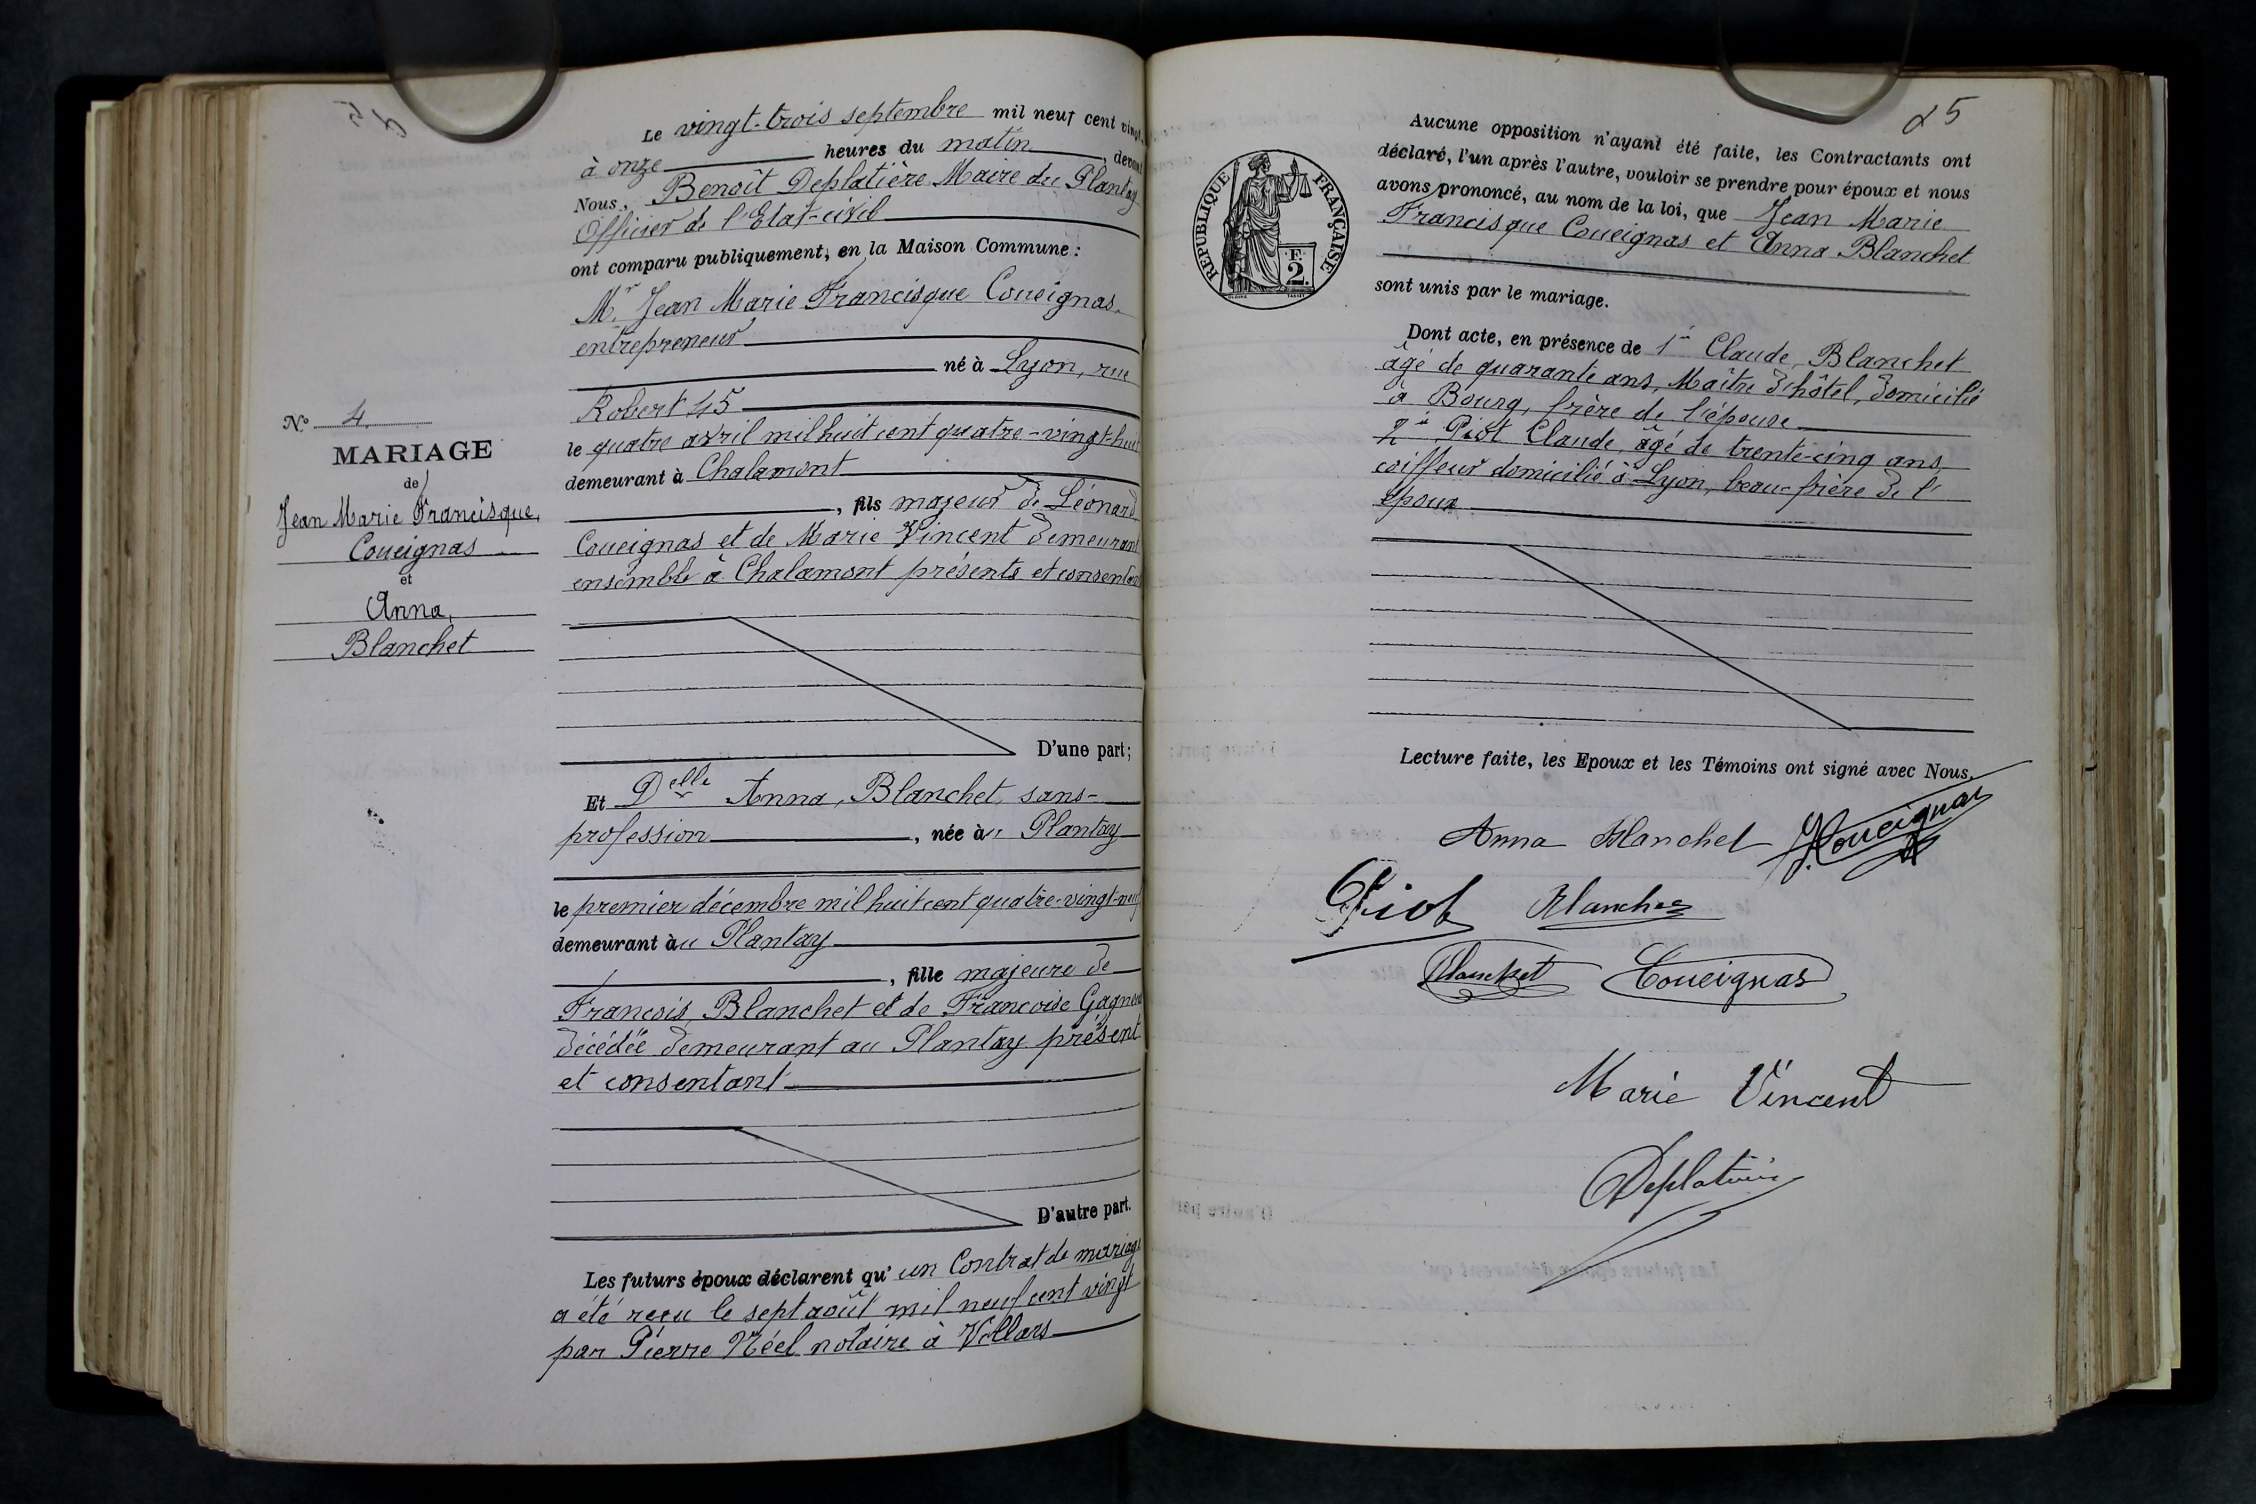 Le vingt-trois septembre mil neuf cent vingt
à onze heures du matin, devant
Nous, Benoît Deplatière Maire du Plantay
Officier de l'Etat-civil
ont comparu publiquement, en la Maison Commune :
Mr Jean Marie Francisque Coueignas
entrepreneur
né à Lyon, rue
Robert 45
le quatre avril mil huit cent quatre-vingt-huit
demeurant à Chalamont
, fils majeur de Léonard
Coueignas et de Marie Vincent demeurant
ensemble à Chalamont présents et consentant
D'une part;
Et Delle Anna, Blanchet, sans-
profession, née àu Plantay
le premier décembre mil huit cent quatre-vingt-neuf
demeurant àu Plantay
, fille majeure de
François Blanchet et de Francoise
décédée demeurant au Plantay présent
et consentant
D'autre part.
Les futurs époux déclarent qu' un Contrat de mariage
a été reçu le sept août mil neuf cent vingt
par Pierre Néel notaire à Villars
N° 4
MARIAGE
de
Jean Marie Francisque,
Coueignas
et
Anna,
Blanchet
25
REPUBLIQUE FRANÇAISE
2 F.
Aucune opposition n'ayant été faite, les Contractants ont
déclaré, l'un après l'autre, vouloir se prendre pour époux et nous
avons prononcé, au nom de la loi, que Jean Marie
Francisque Coueignas et Anna Blanchet
sont unis par le mariage.
Dont acte, en présence de 1° Claude, Blanchet
âgé de quarante ans, Maître d'hôtel, domicilié
à Bourg, frère de l'épouse
2° Piot Claude, âgé de trente-cinq ans,
coiffeur domicilié à Lyon, beau-frère de l'
époux
Lecture faite, les Epoux et les Témoins ont signé avec Nous.
Anna Blanchet Coueignas
Piot Blanchet
Blanchet Coueignas
Marie Vincent
Deplatière